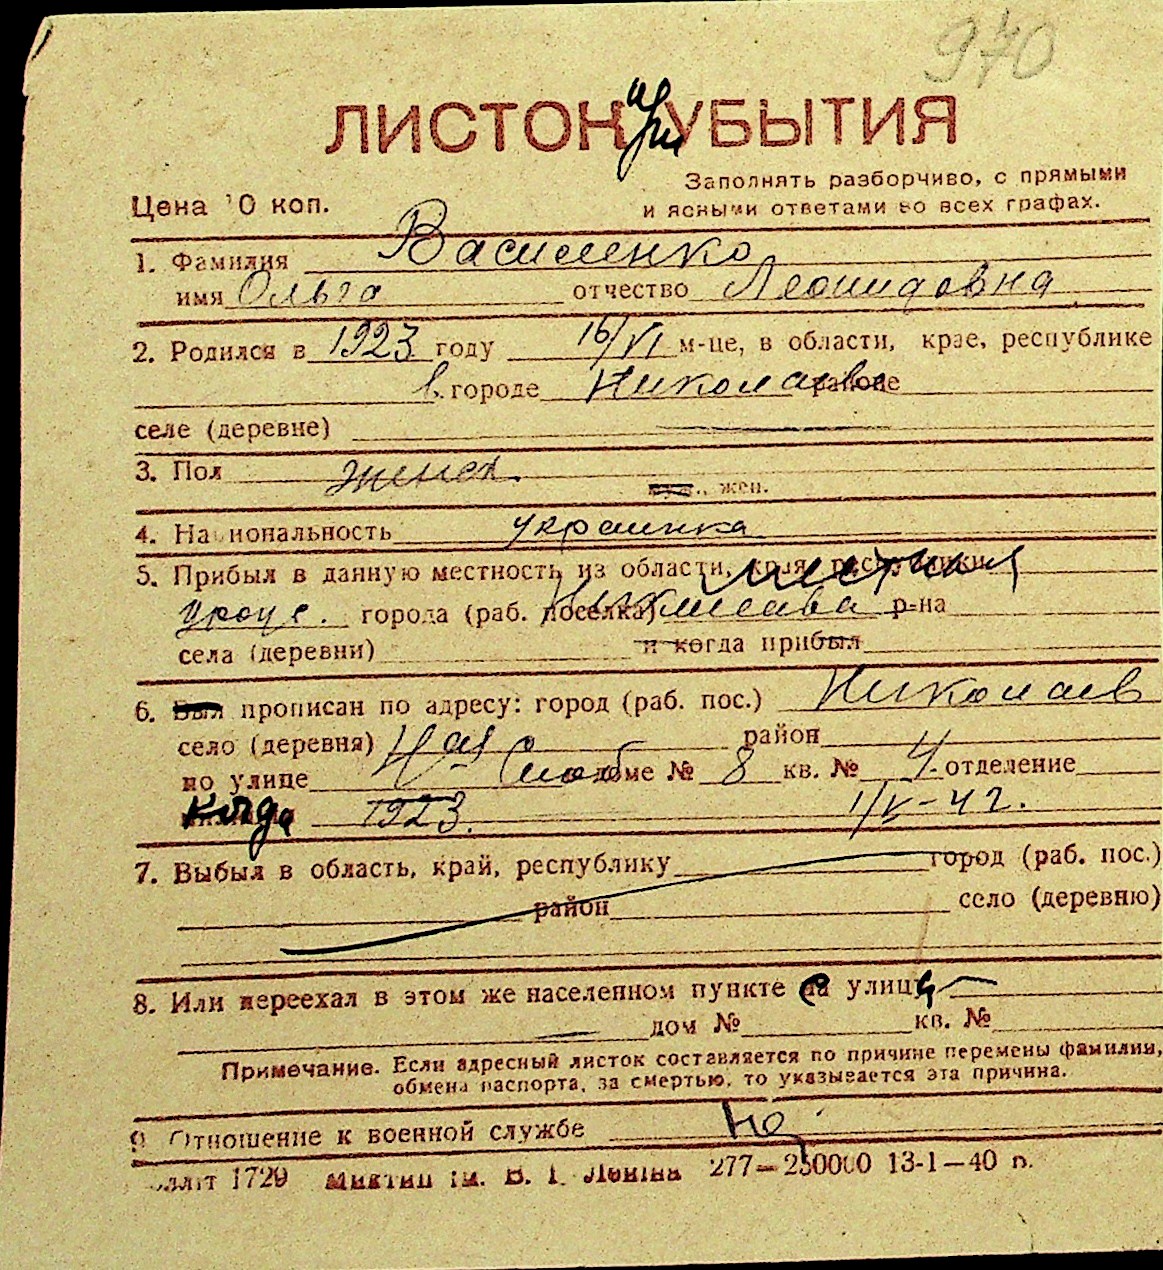 970
ЛИСТОК при УБЫТИЯ
Заполнять разборчиво, с прямыми
Цена 10 коп. и ясными ответами во всех графах.
1. Фамилия Василенко
имя Ольга отчество Леонидовна
2. Родился в 1923 году 16/VI м-це, в области, крае, республике
в городе Николаеве районе
селе (деревне)
3. Пол женск. муж., жен.
4. Национальность украинка
5. Прибыл в данную местность из области, края, республики местная
города (раб. поселка) Николаева р-на
села (деревни) и когда прибыл
6. Был прописан по адресу: город (раб. пос.) Николаев
село (деревня) район
по улице 4ая Слоб доме № 8 кв. № 4 отделение
когда 1923. 1/V-42.
7. Выбыл в область, край, республику город (раб. пос.)
район село (деревню)
8. Или переехал в этом же населенном пункте с улицы
дом № кв. №
Примечание. Если адресный листок составляется по причине перемены фамилии,
обмена паспорта, за смертью, то указывается эта причина.
9. Отношение к военной службе
1729 277—250000 13-1—40 п.